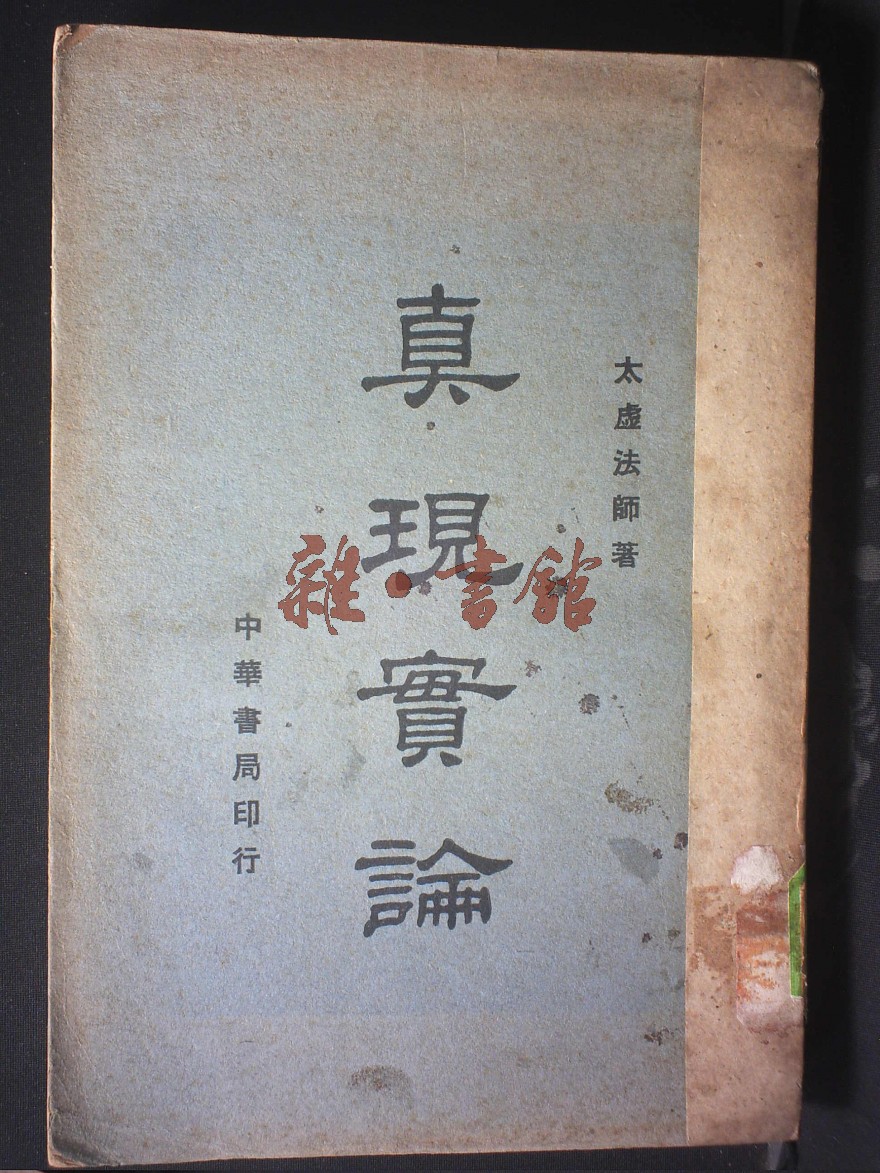 太虛法師著
真現實論
中華書局印行
雜·書館